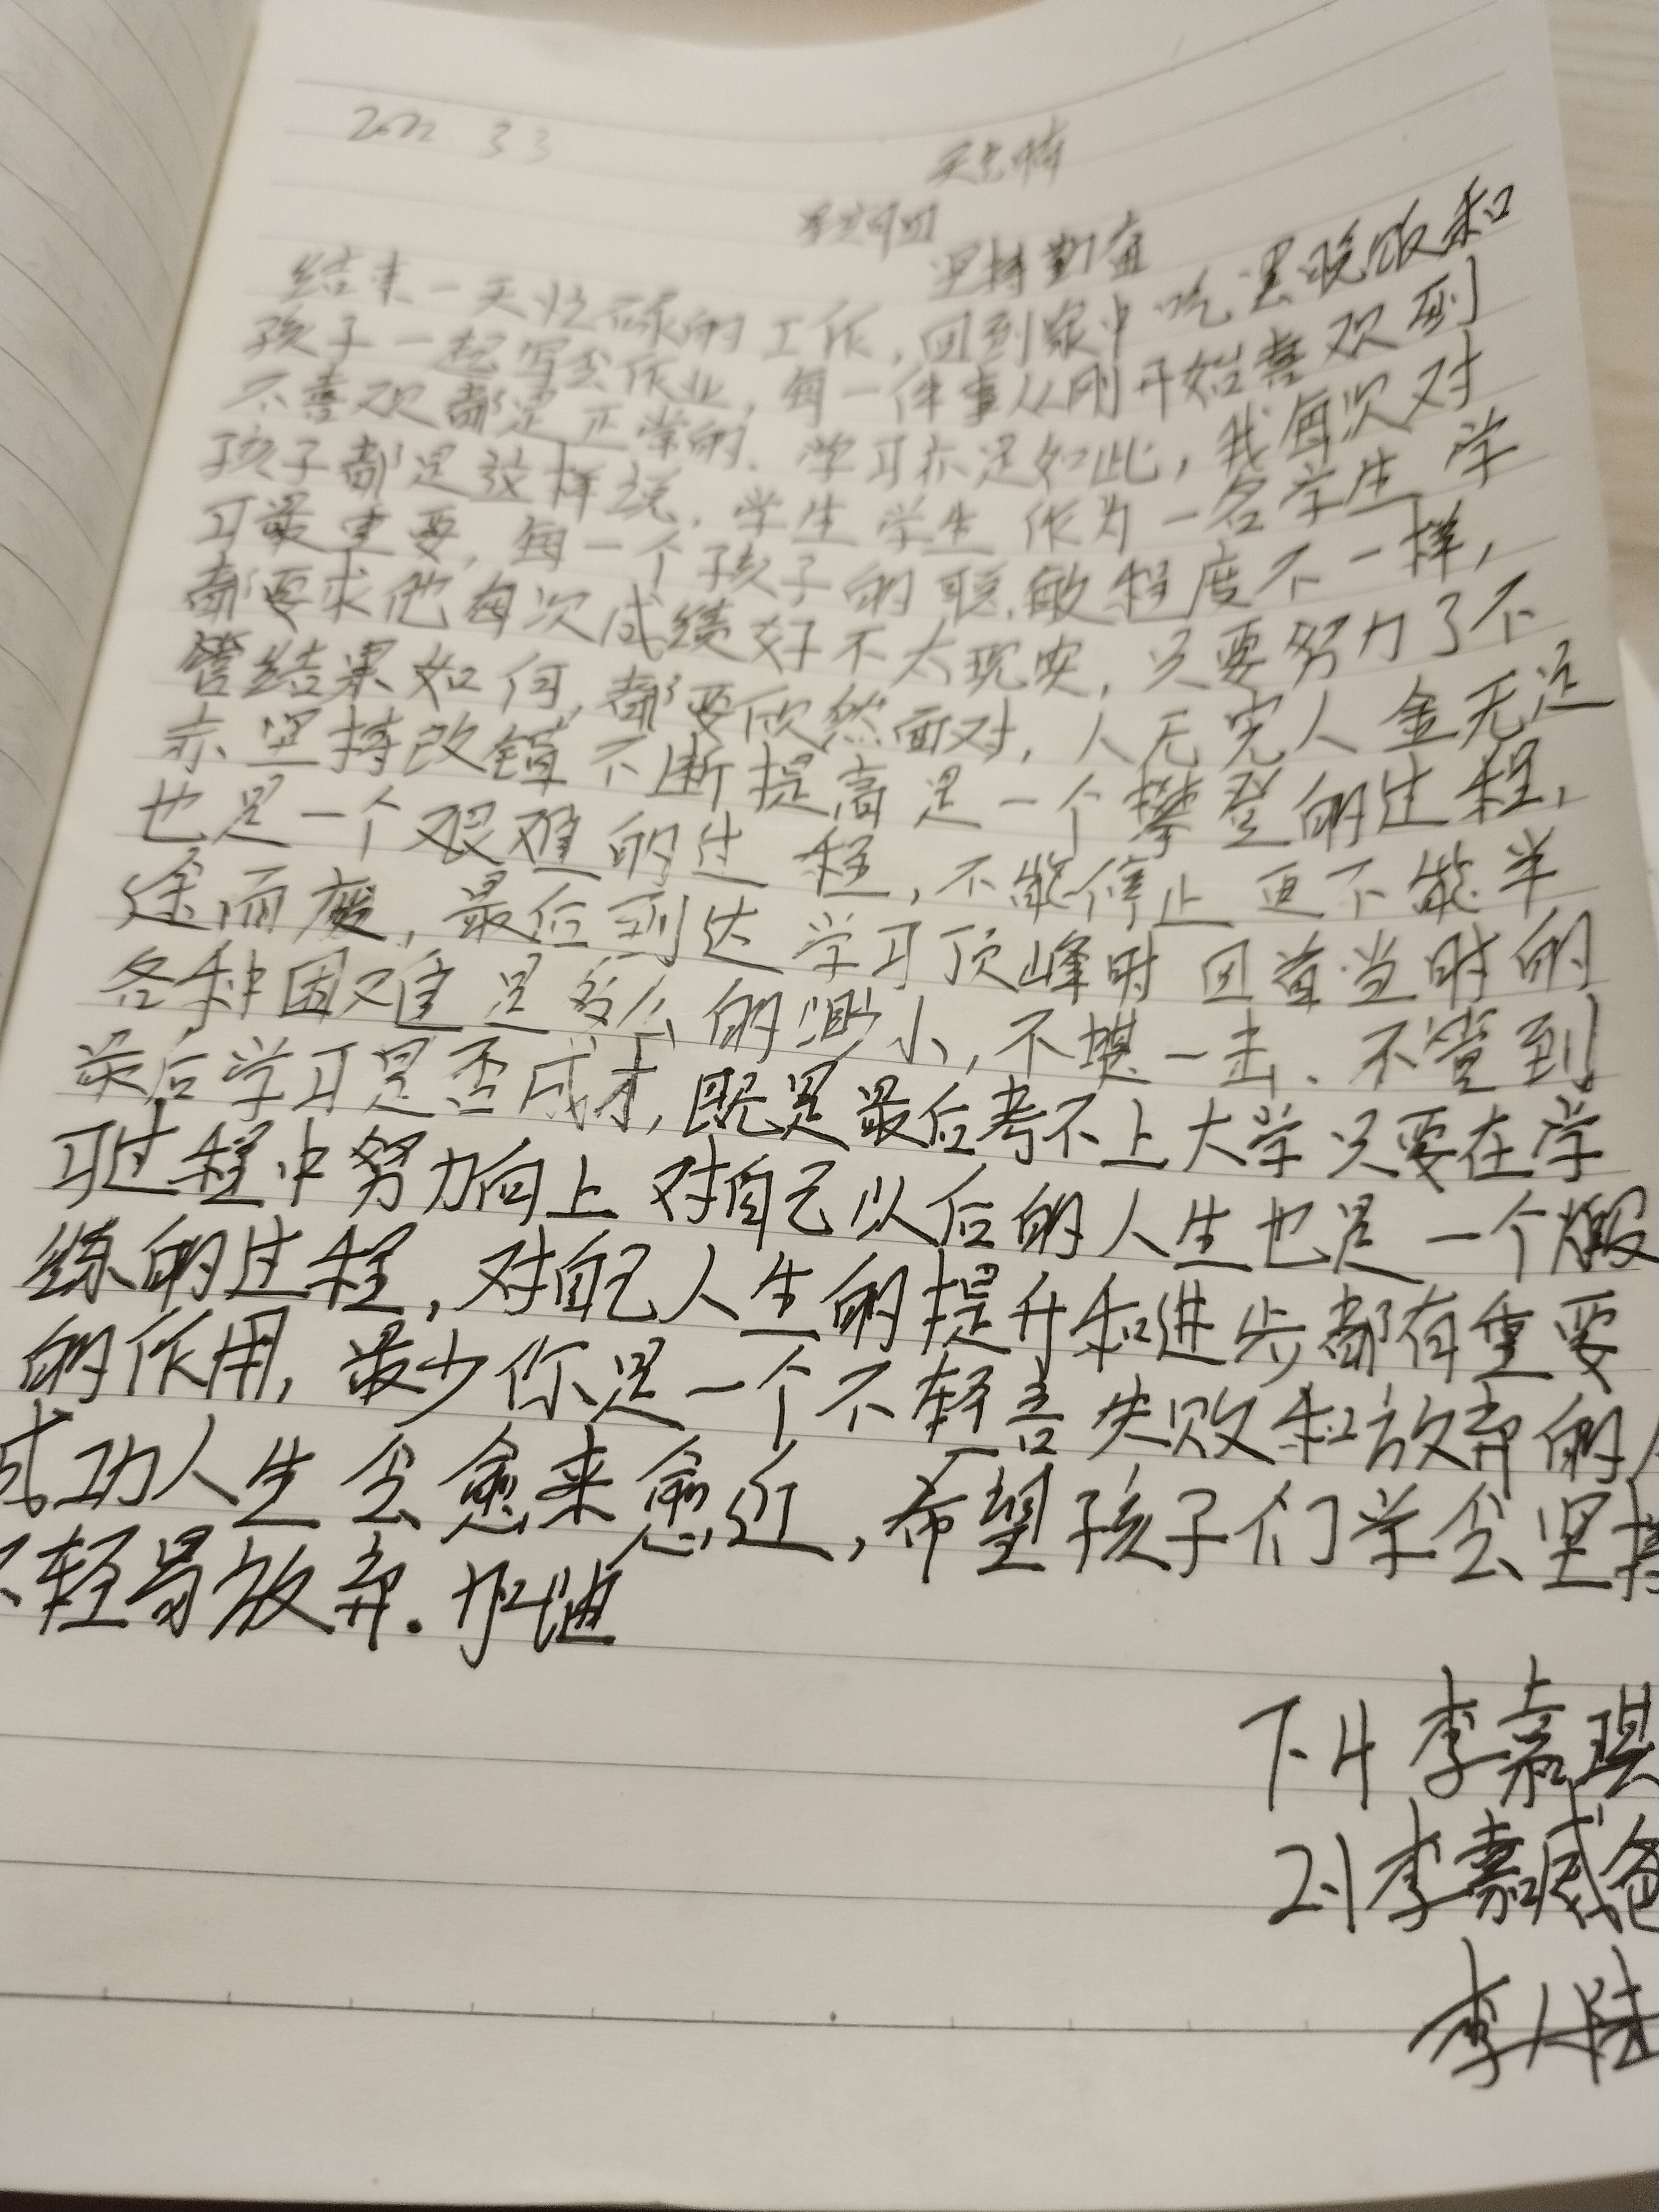 2022.3.3
结束一天忙碌的工作,回到家中吃罢晚饭和
孩子一起写会作业,每一件事从刚开始喜欢到
不喜欢都是正常的.学习亦是如此,我每次对
孩子都是这样说,学生学生作为一名学生学
习最重要,每一个孩子的聪敏程度不一样,
都要求他每次成绩好不太现实,只要努力了不
管结果如何,都要欣然面对,人无完人金无足
赤坚持改错不断提高是一个攀登的过程,
也是一个艰难的过程,不能停止更不能半
途而废,最后到达学习顶峰时回首当时的
各种困难是多么的渺小,不堪一击.不管到
最后学习是否成才,既是最后考不上大学只要在学
习过程中努力向上对自己以后的人生也是一个煅
练的过程,对自己人生的提升和进步都有重要
的作用,最少你是一个不轻言失败和放弃的人
成功人生会愈来愈近,希望孩子们学会坚持
不轻易放弃.加油
7.4李嘉琪
2.1李嘉威爸